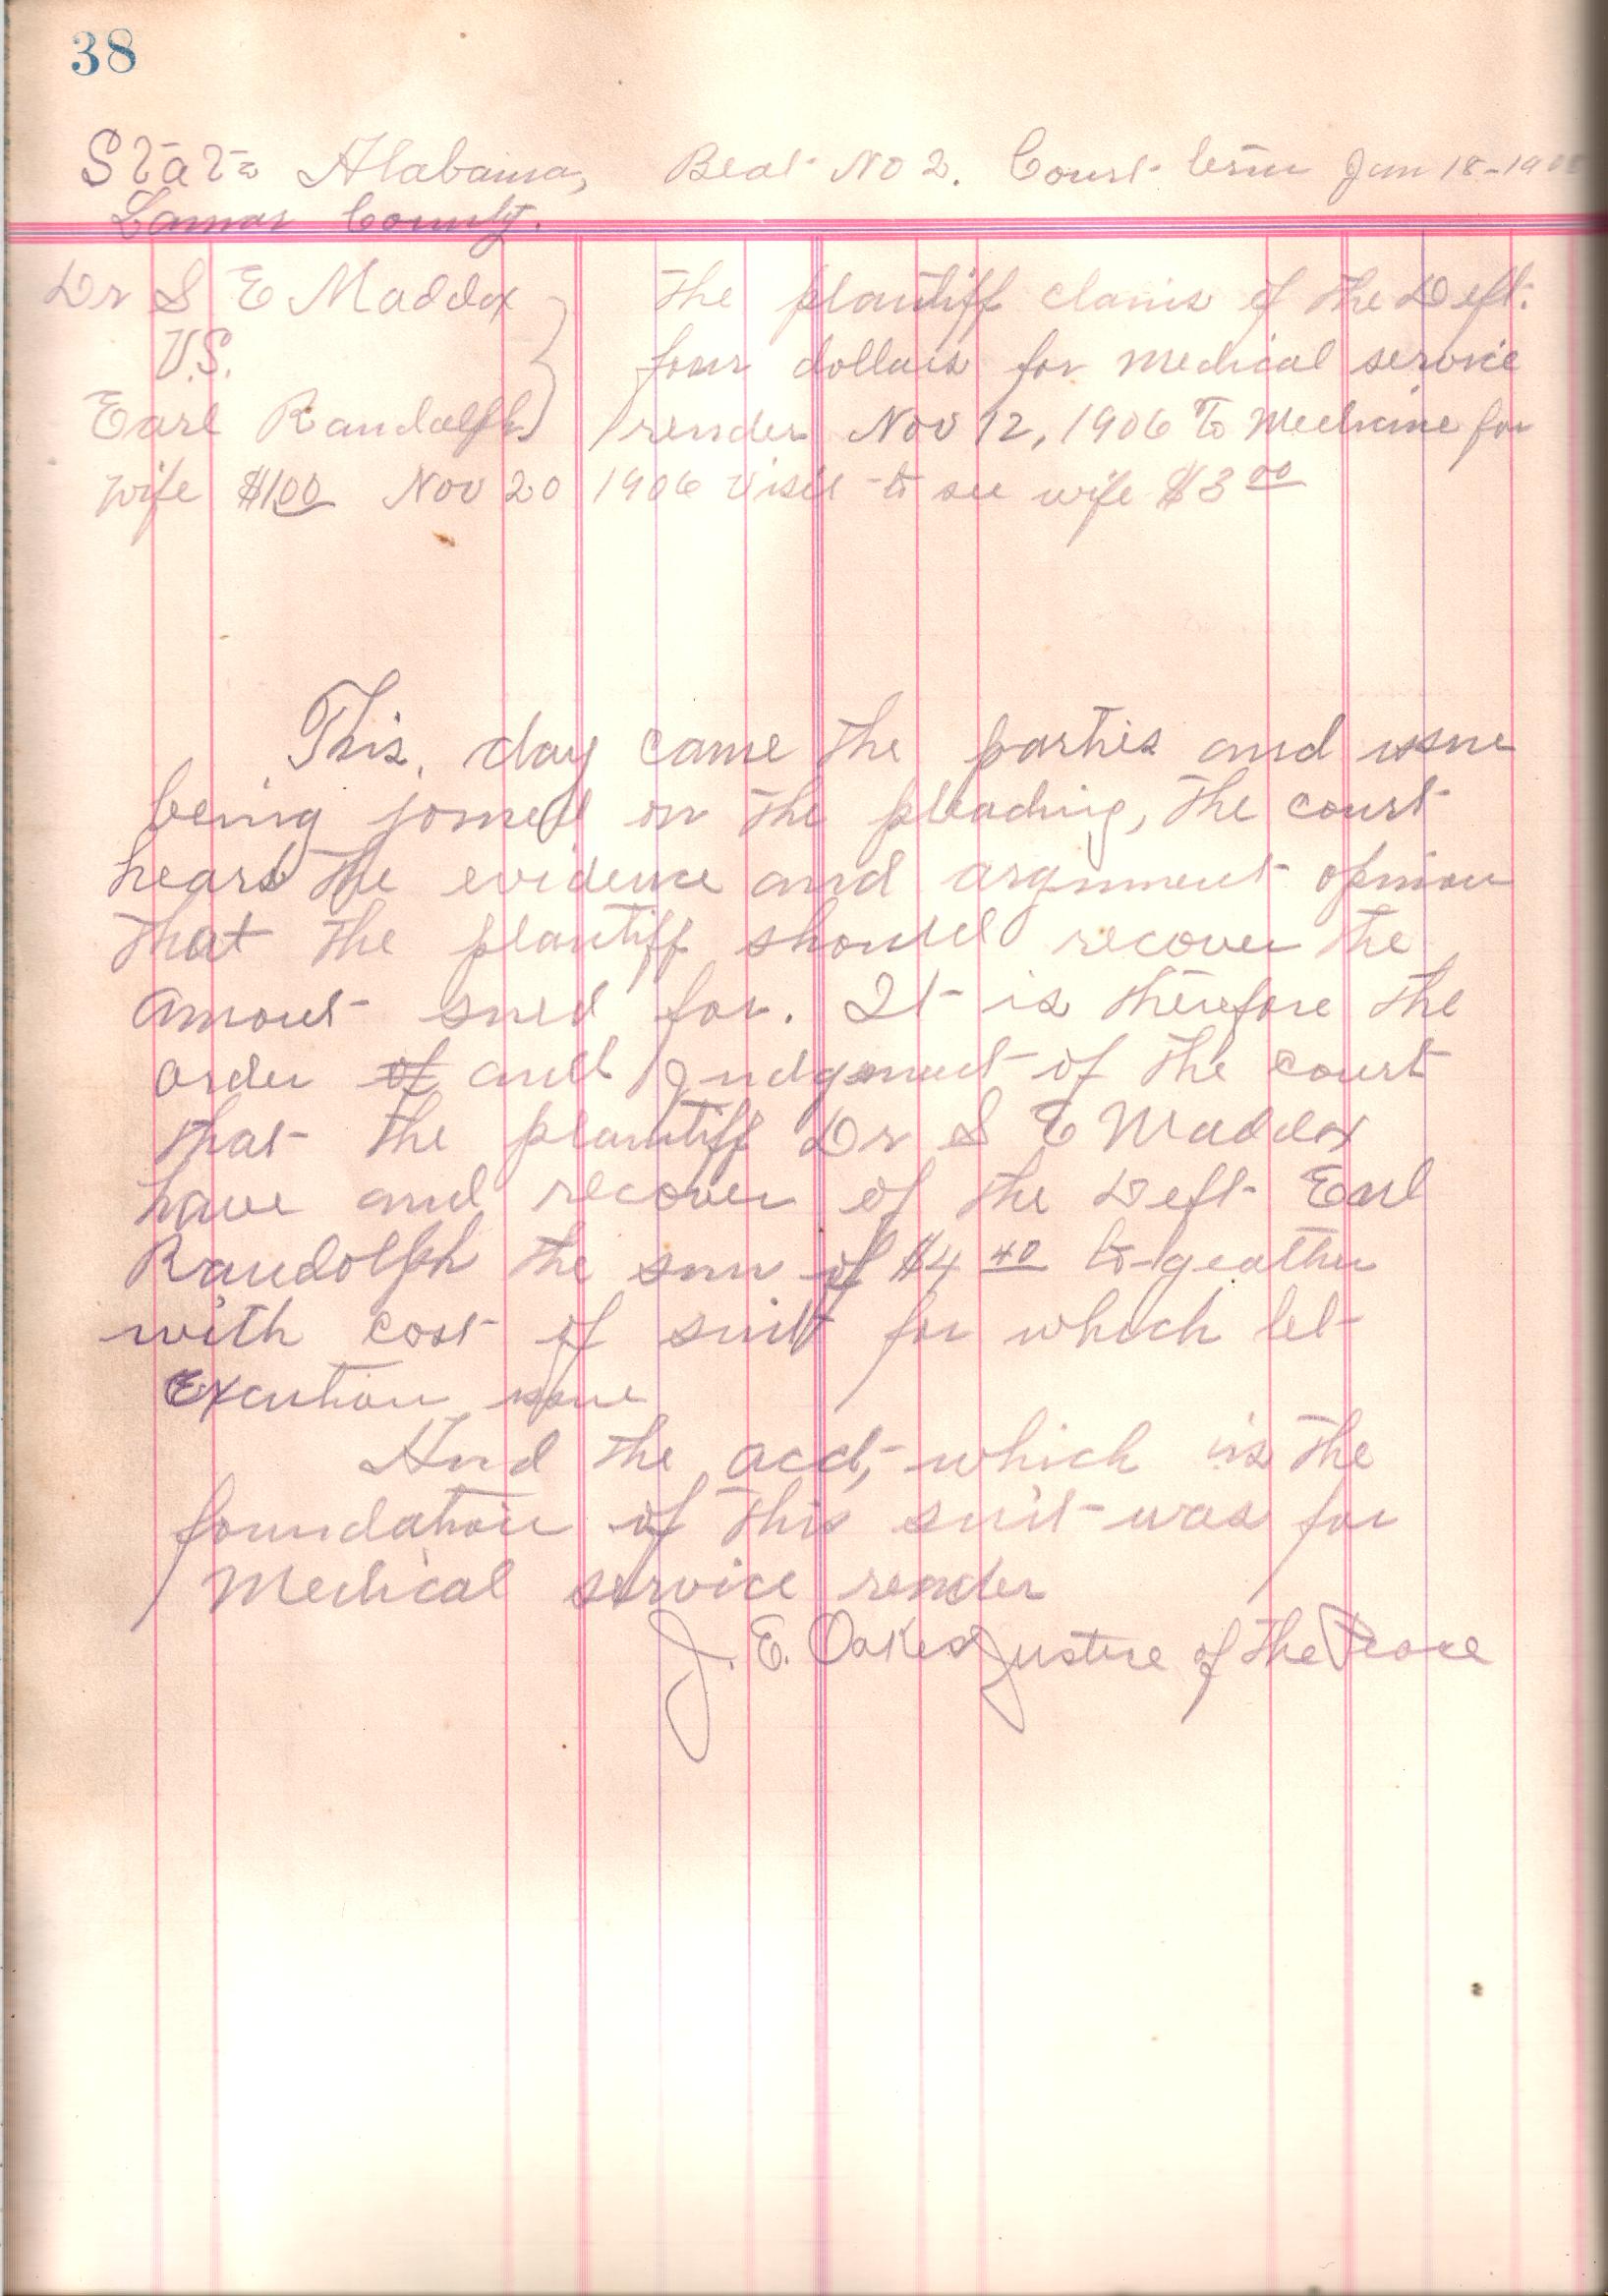 38
State Alabama, Beat No 2. Court term Jan 18-190
Lamar County.
Dr S E Maddox the plantiff claims of the Deft.
V.S. four dollars for medical service
Earl Randolph render Nov 12, 1906 To Medicine for
wife $1.00 Nov 20 1906 visit to see wife $3 00
This day came the parties and issue
being joined on the pleading, the court
heard the evidence and argument opinion
that the plantiff should recover the
amout sued for. It is therefore the
order of and Judgment of the court
that the plantiff Dr S E Maddox
have and recover of the Deft Earl
Randolph the sum of $4 40 to geather
with cost of suit for which let
Excution issue
And the acct, which is the
foundation of this suit was for
Medical service render
J. E. Oakes Justice of the Peace